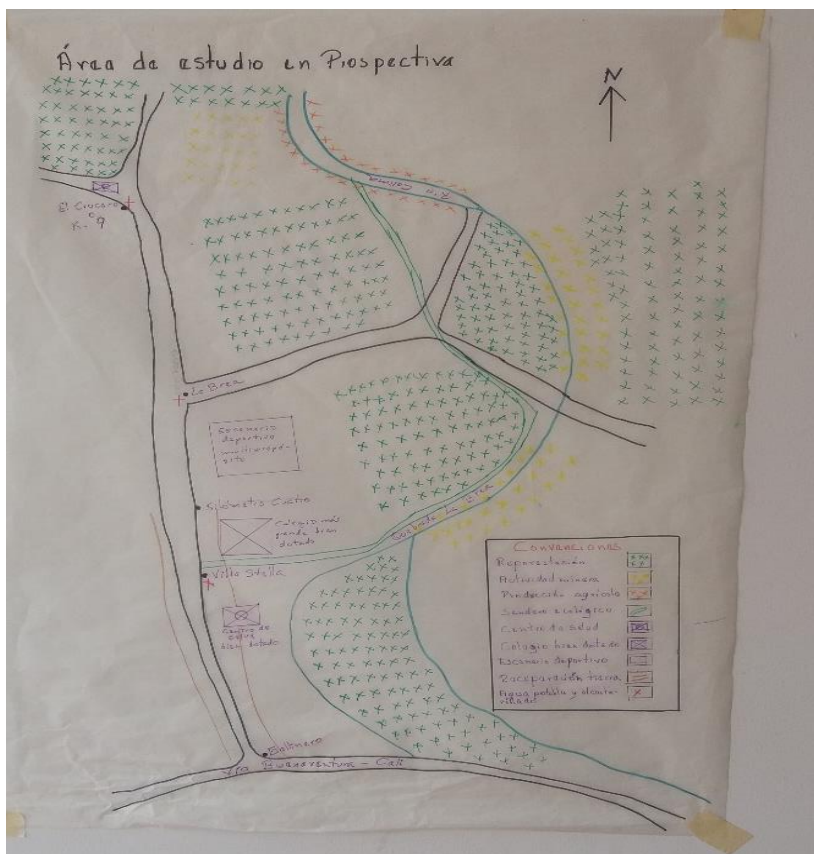 Área de estudio en Prospectiva
N
Río Calima
El Crucero
o
K-9
La Brea
Escenario
deportivo
multipropó-
sito
Silvestre Castro
Colegio más
grande bien
dotado
Quebrada La Brea
Villa Stella
Centro de
salud
bien dotado
Gallinero
Vía Buenaventura - Cali
CONVENCIONES
Reforestación
Actividad minera
Producción agrícola
Sendero ecológico
Centro de salud
Colegio bien dotado
Escenario deportivo
Recuperación tierra
Agua potable y alcanta-
rillado